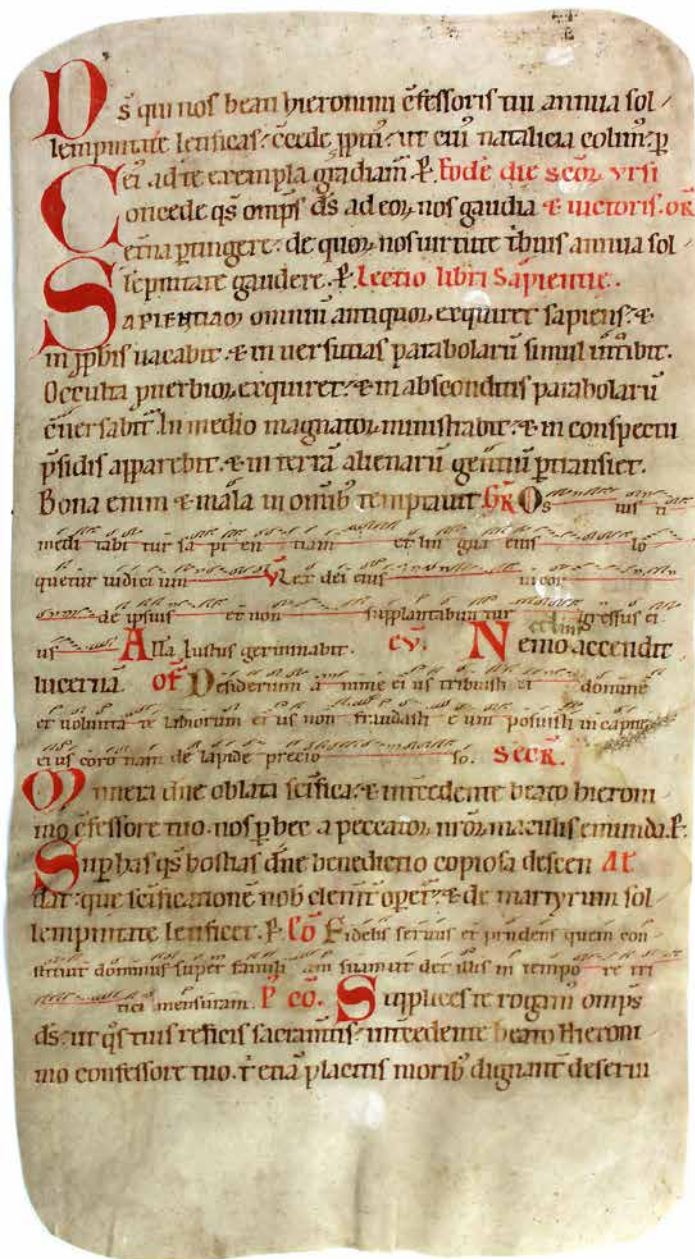 Ds̄ qui nos beati hieronimi c̄fessoris tui annua sol
lempnitate letificas: c̄cede ꝓpiti᾽ ut cui᾽ natalicia colim᾽ ꝑ
ei᾽ ad te exempla gradiam̄. P. Eodē die sc̄oꝝ vrsi
Concede qs̄ omp̄s ds̄ ad eoꝝ nos gaudia & uictoris. or̄
et̄na ꝑtingere: de quoꝝ nos uirtute t̄buis annua sol
lēpnitate gaudere. P. Lectio libri Sapientie.
SAPIENTIAM omniū antiquoꝝ exquiret sapiens: &
in ꝓphis uacabit. & in uersutias parabolarū simul int̄ibit.
Occulta ꝓuerbioꝝ exquiret: & in absconditis parabolarū
c̄uersabit̄. In medio magnatoꝝ ministrabit: & in conspectu
p̄sidis apparebit. & in terrā alienarū gentiū ꝑtransiet.
Bona enim & mala in omib᾽ temptauit. Gr̄ Os ius ti
medi tabi tur sa pi en tiam et lin gua eius lo
quetur iudici um V̄ Lex dei eius in cor
de ipsius et non supplantabun tur gressus ei
us Alla Iustus germinabit. ev. Nemo accendit
lucernā. of̄ Desiderium a nime ei us tribuisti ei domine
et uolunta te labiorum ei us non fraudasti e um posuisti in capite
ei us coro nam de lapide precio so. Secr̄.
Munera dn̄e oblata sc̄ifica: & int̄cedente beato hieroni
mo c̄fessore tuo. nos ꝑ hec a peccatoꝝ nr̄oꝝ maculis emunda. P.
Suꝑ has qs̄ hostias dn̄e benedictio copiosa descen Al̄
dat: que sc̄ificationē nob̄ clemt̄ opet̄: & de martyrum sol
lempnitate letificet. P. Cō Fidelis seruus et prudens quem con
stituit dominus super famili am suam ut det illis in tempo re tri
tici mensuram. P cō. Supplices te rogam᾽ omp̄s
ds̄: ut qs̄ tuis reficis sacram̄tis: int̄cedente beato Hieroni
mo confessore tuo. t᾽ etiā placitis morib᾽ dignant̄ deserui